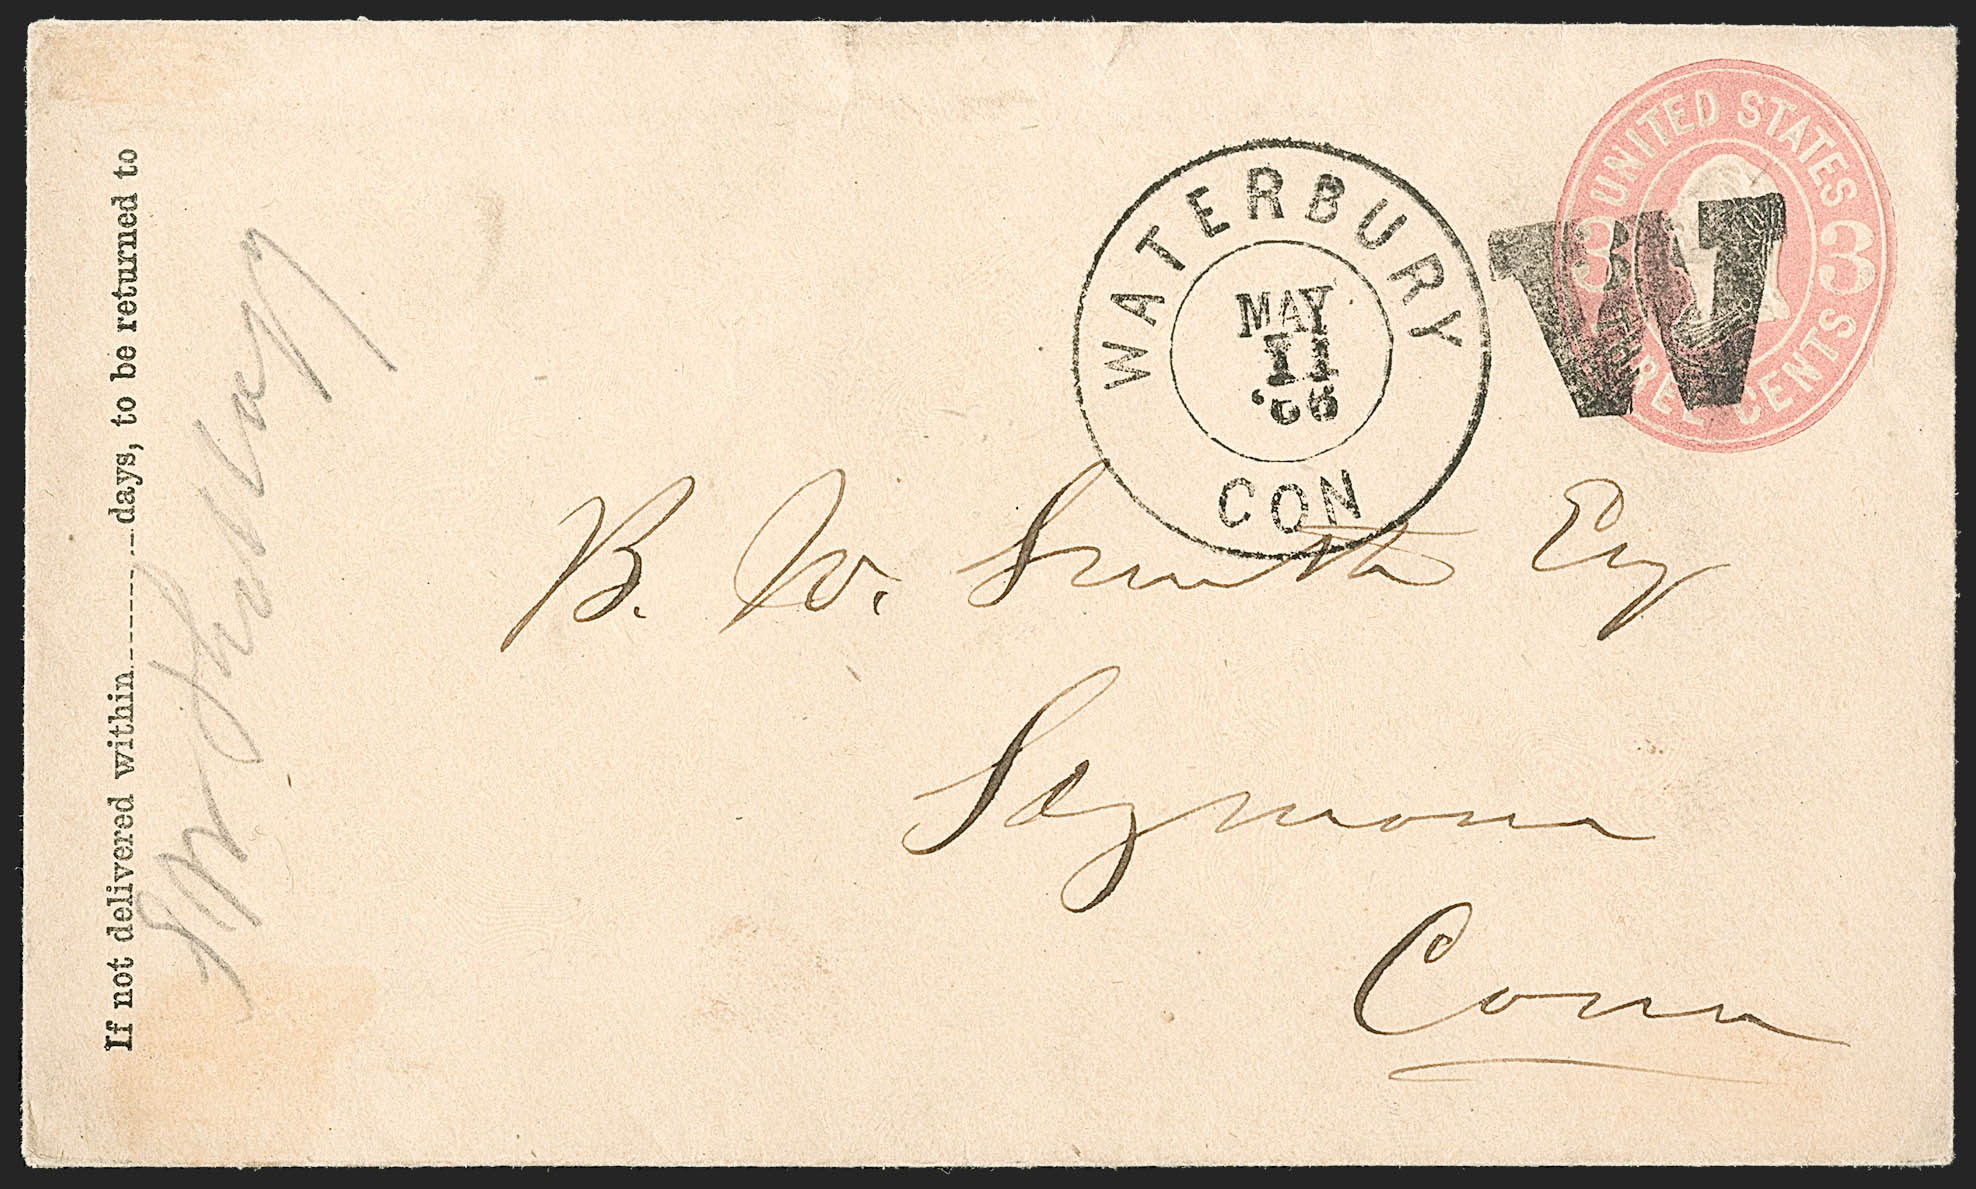 UNITED STATES
3 3
THREE CENTS
W
WATERBURY
MAY
11
'66
CON
B. W. Smith Esq
Seymour
Conn
If not delivered within days, to be returned to
Mr